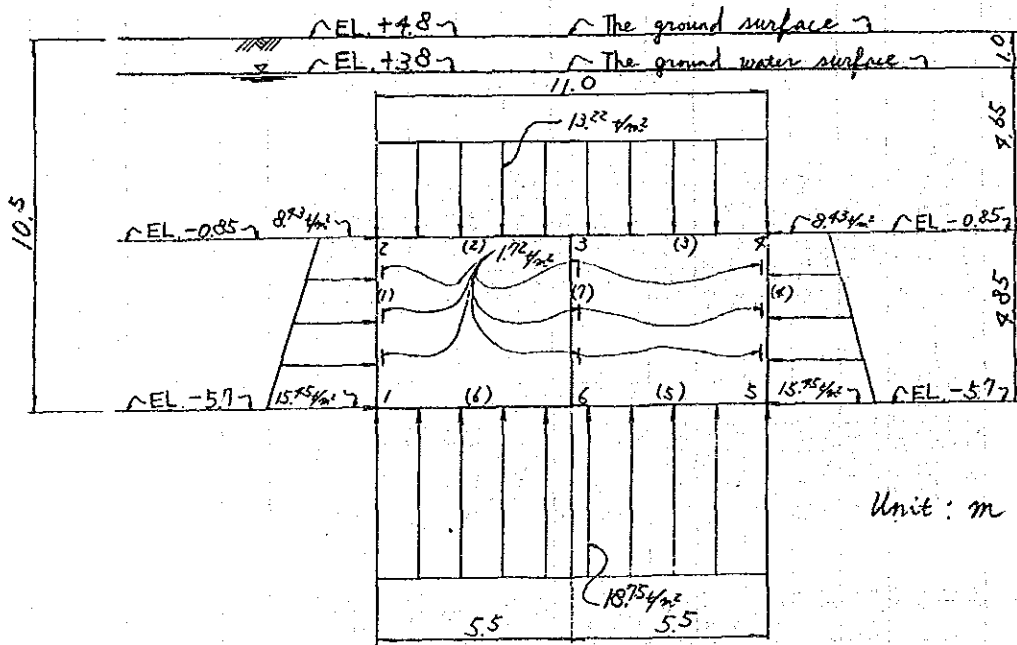 EL. +4.8 The ground surface
EL. +3.8 The ground water surface
1.0
11.0
13.22 t/m²
4.85
10.5
EL. -0.85 8.43 t/m²
8.43 t/m² EL. -0.85
2 (2) 1.72 t/m² 3 (3) 4
(1) (7) (4)
4.85
EL. -5.7 15.45 t/m² 1 (6) 6 (5) 5 15.45 t/m² EL. -5.7
Unit : m
18.75 t/m²
5.5 5.5